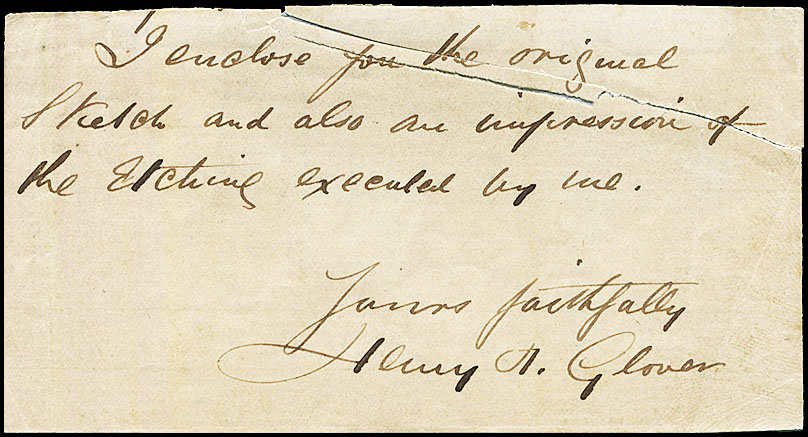 I enclose you the original
Sketch and also an impression of
the Etching executed by me.
Yours faithfully
Henry H. Glover